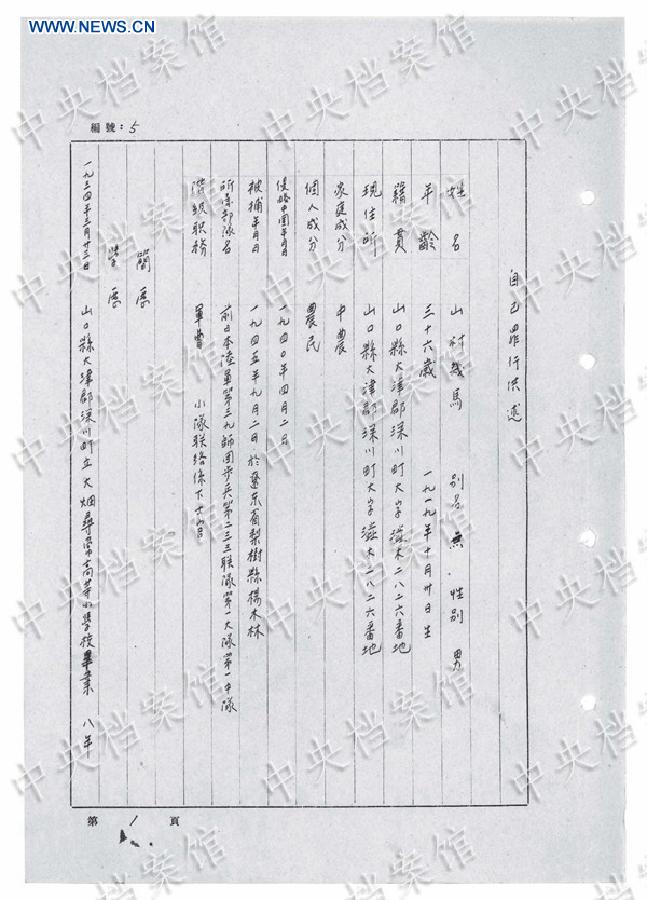 WWW.NEWS.CN
編號:5
自己罪行供述
姓名 山村 馬 別名無.性別 男
年齡 三十六歲 一九一九年十月廿日生
籍貫 山口縣大津郡深川町大字 木二八二六番地
現住所 山口縣大津郡深川町大字 木二八二六番地
家庭成分 中農
個人成分 農民
侵略中國年月日 一九四〇年四月二日
被捕年月日 一九四五年九月二日於遼東省梨樹縣楊木林
所屬部隊名 前日本陸軍第三九師団步兵第二三三联隊第一大隊第一中隊
階級职務 軍曹 小隊联络係下士官
簡歷
學歷
一九三四年三月廿三日 山口縣大津郡深川町立大畑尋常高等小學校畢業 八年
第 1 頁
中央档案馆